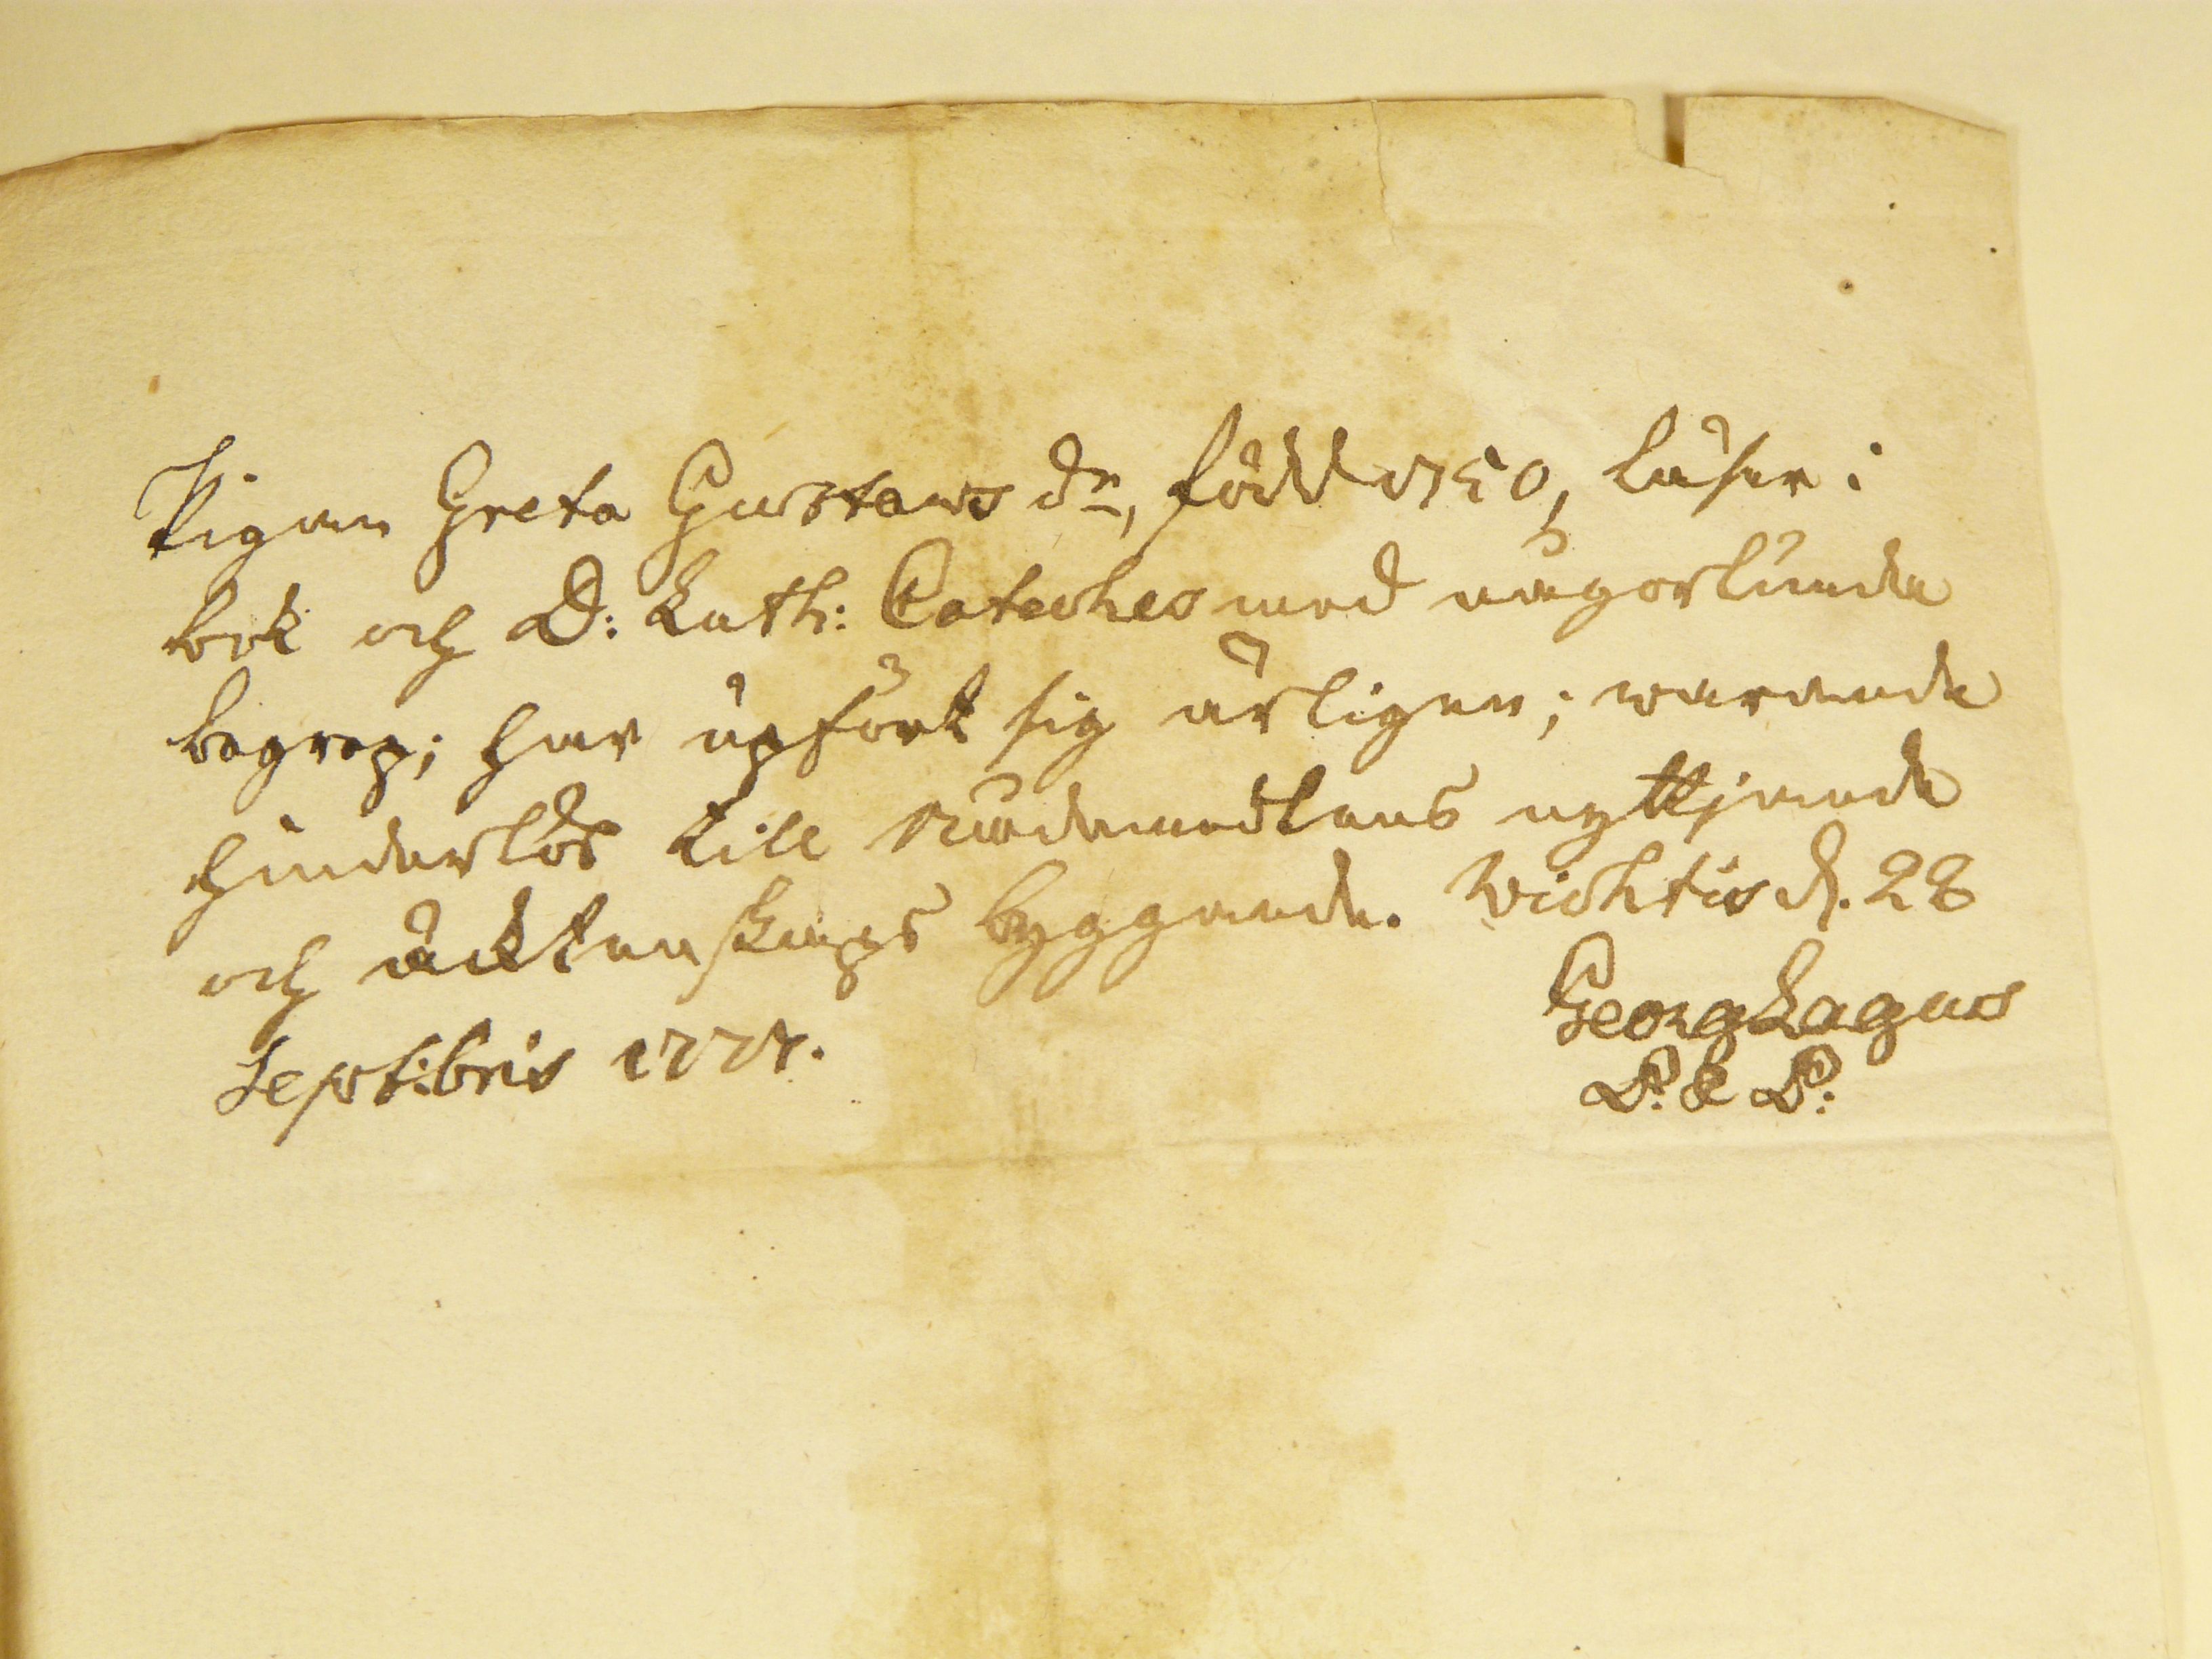 Pigan Greta Gustaws dr, född 1750, läser i
bok och D: Luth: Cateches med någorlunda
begrep; har upfört sig ärligen; warande
hinderlös till nådemedlens nyttjande
och äcktenskaps byggande. Wichtis d. 28
Septibris 1777.
Georg Lagus
P. & P: